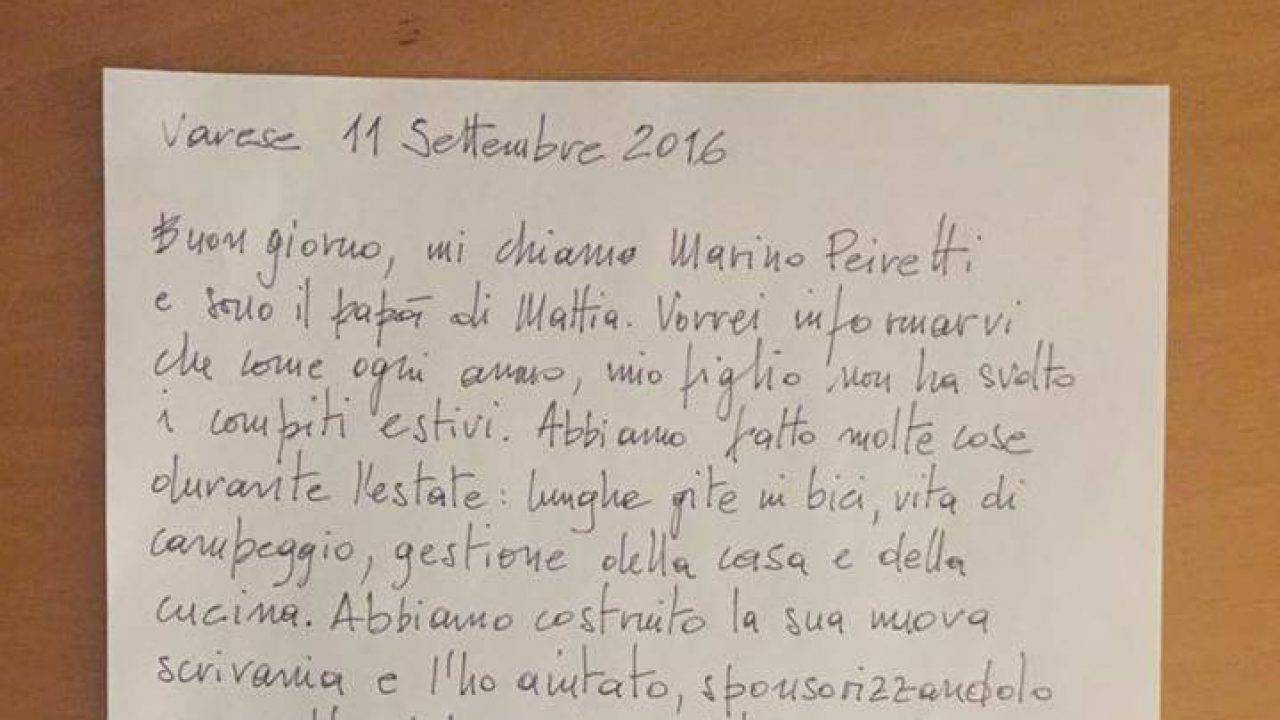 Varese 11 Settembre 2016
Buon giorno, mi chiamo Marino Peiretti
e sono il papà di Mattia. Vorrei informarvi
che come ogni anno, mio figlio non ha svolto
i compiti estivi. Abbiamo fatto molte cose
durante l'estate: lunghe gite in bici, vita di
campeggio, gestione della casa e della
cucina. Abbiamo costruito la sua nuova
scrivania e l'ho aiutato, sponsorizzandolo